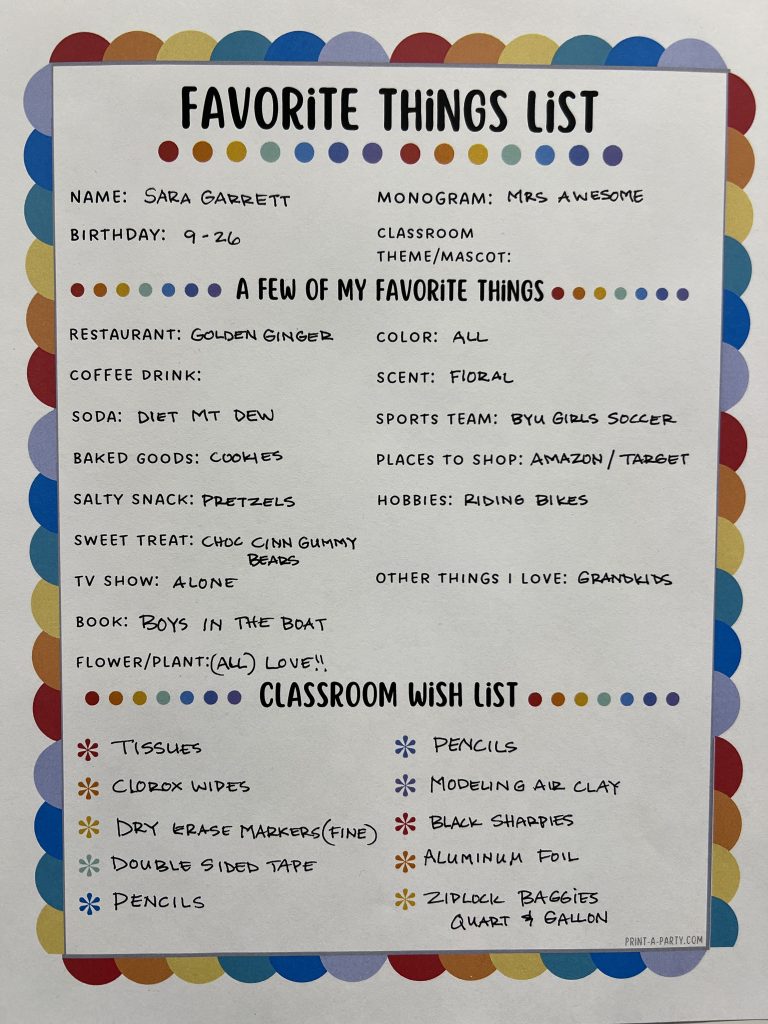 FAVORITE THINGS LIST
NAME: SARA GARRETT
MONOGRAM: MRS AWESOME
BIRTHDAY: 9-26
CLASSROOM
THEME/MASCOT:
A FEW OF MY FAVORITE THINGS
RESTAURANT: GOLDEN GINGER
COLOR: ALL
COFFEE DRINK:
SCENT: FLORAL
SODA: DIET MT DEW
SPORTS TEAM: BYU GIRLS SOCCER
BAKED GOODS: COOKIES
PLACES TO SHOP: AMAZON / TARGET
SALTY SNACK: PRETZELS
HOBBIES: RIDING BIKES
SWEET TREAT: CHOC CINN GUMMY
BEARS
TV SHOW: ALONE
OTHER THINGS I LOVE: GRANDKIDS
BOOK: BOYS IN THE BOAT
FLOWER/PLANT: (ALL) LOVE!!
CLASSROOM WISH LIST
TISSUES
CLOROX WIPES
DRY ERASE MARKERS (FINE)
DOUBLE SIDED TAPE
PENCILS
PENCILS
MODELING AIR CLAY
BLACK SHARPIES
ALUMINUM FOIL
ZIPLOCK BAGGIES
QUART & GALLON
PRINT-A-PARTY.COM